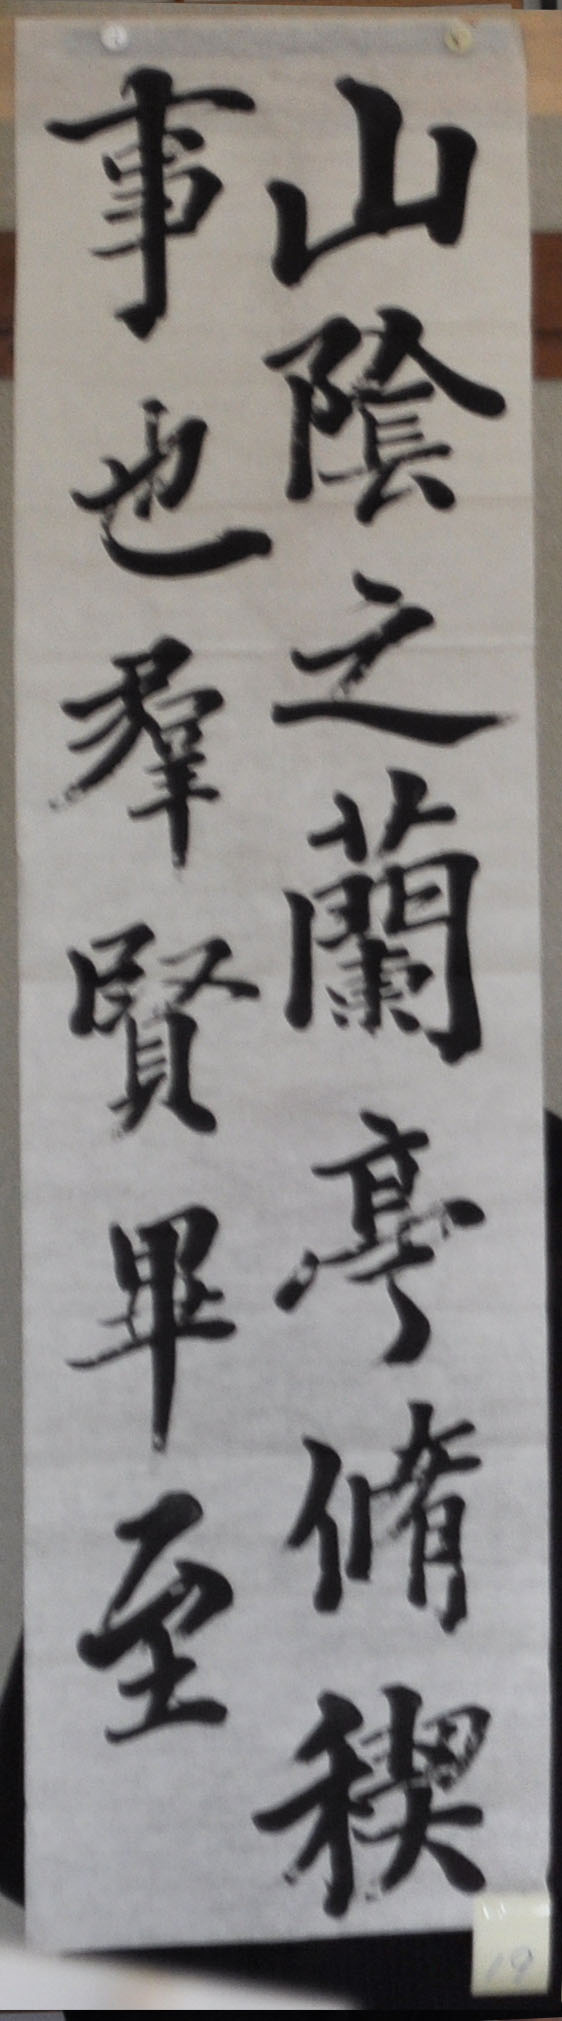 山陰之蘭亭脩稧
事也羣賢畢至
19